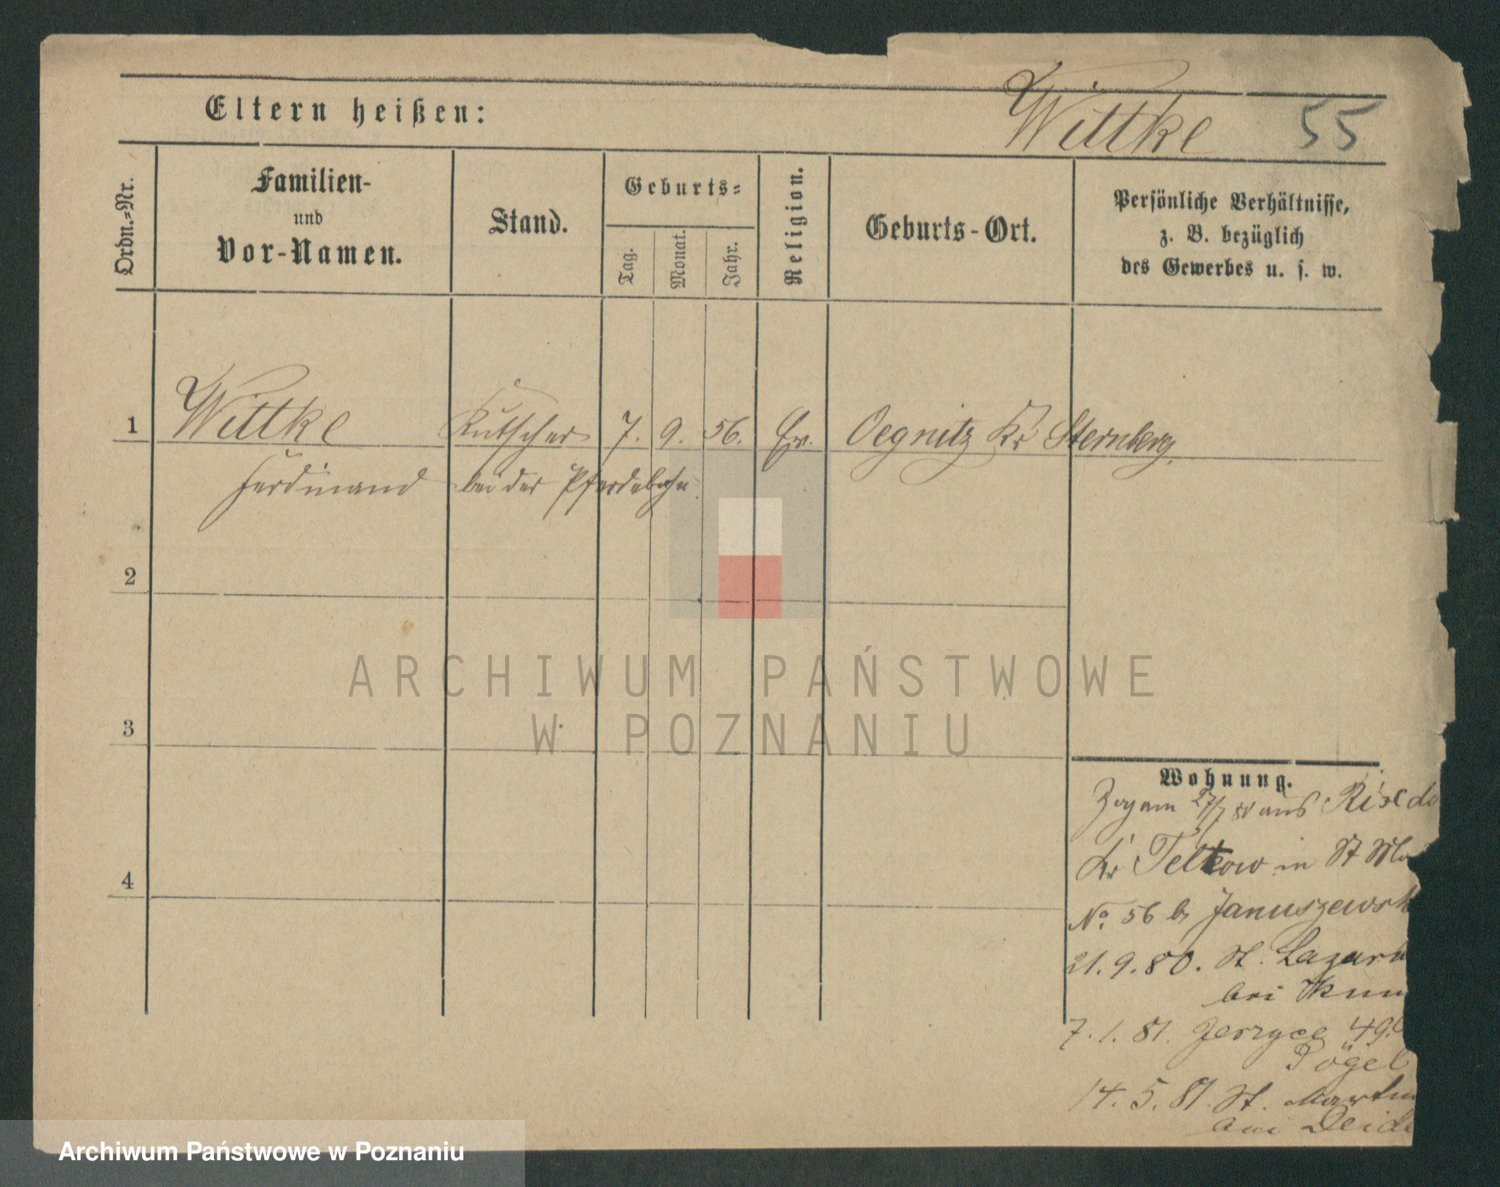 Eltern heißen:
Wittke 55
Ordn.-Nr.
Familien-
und
Vor-Namen.
Stand.
Geburts-
Tag.
Monat.
Jahr.
Religion.
Geburts-Ort.
Persönliche Verhältnisse,
z. B. bezüglich
des Gewerbes u. s. w.
1 Wittke Kutscher 7. 9. 56. Ev. Oegnitz Kr Sternberg.
Ferdinand bei der Pferdebahn.
2
3
4
Wohnung.
Zog am 27/7 80 aus Rixdo
Kr Teltow in St Ma
No. 56 b. Januszewsk
21.9.80. St. Lazaru
bei
7.1.81. Jerzyce 49.
Pögel
14.5.81. St. Martin
bei
ARCHIWUM PAŃSTWOWE
W POZNANIU
Archiwum Państwowe w Poznaniu